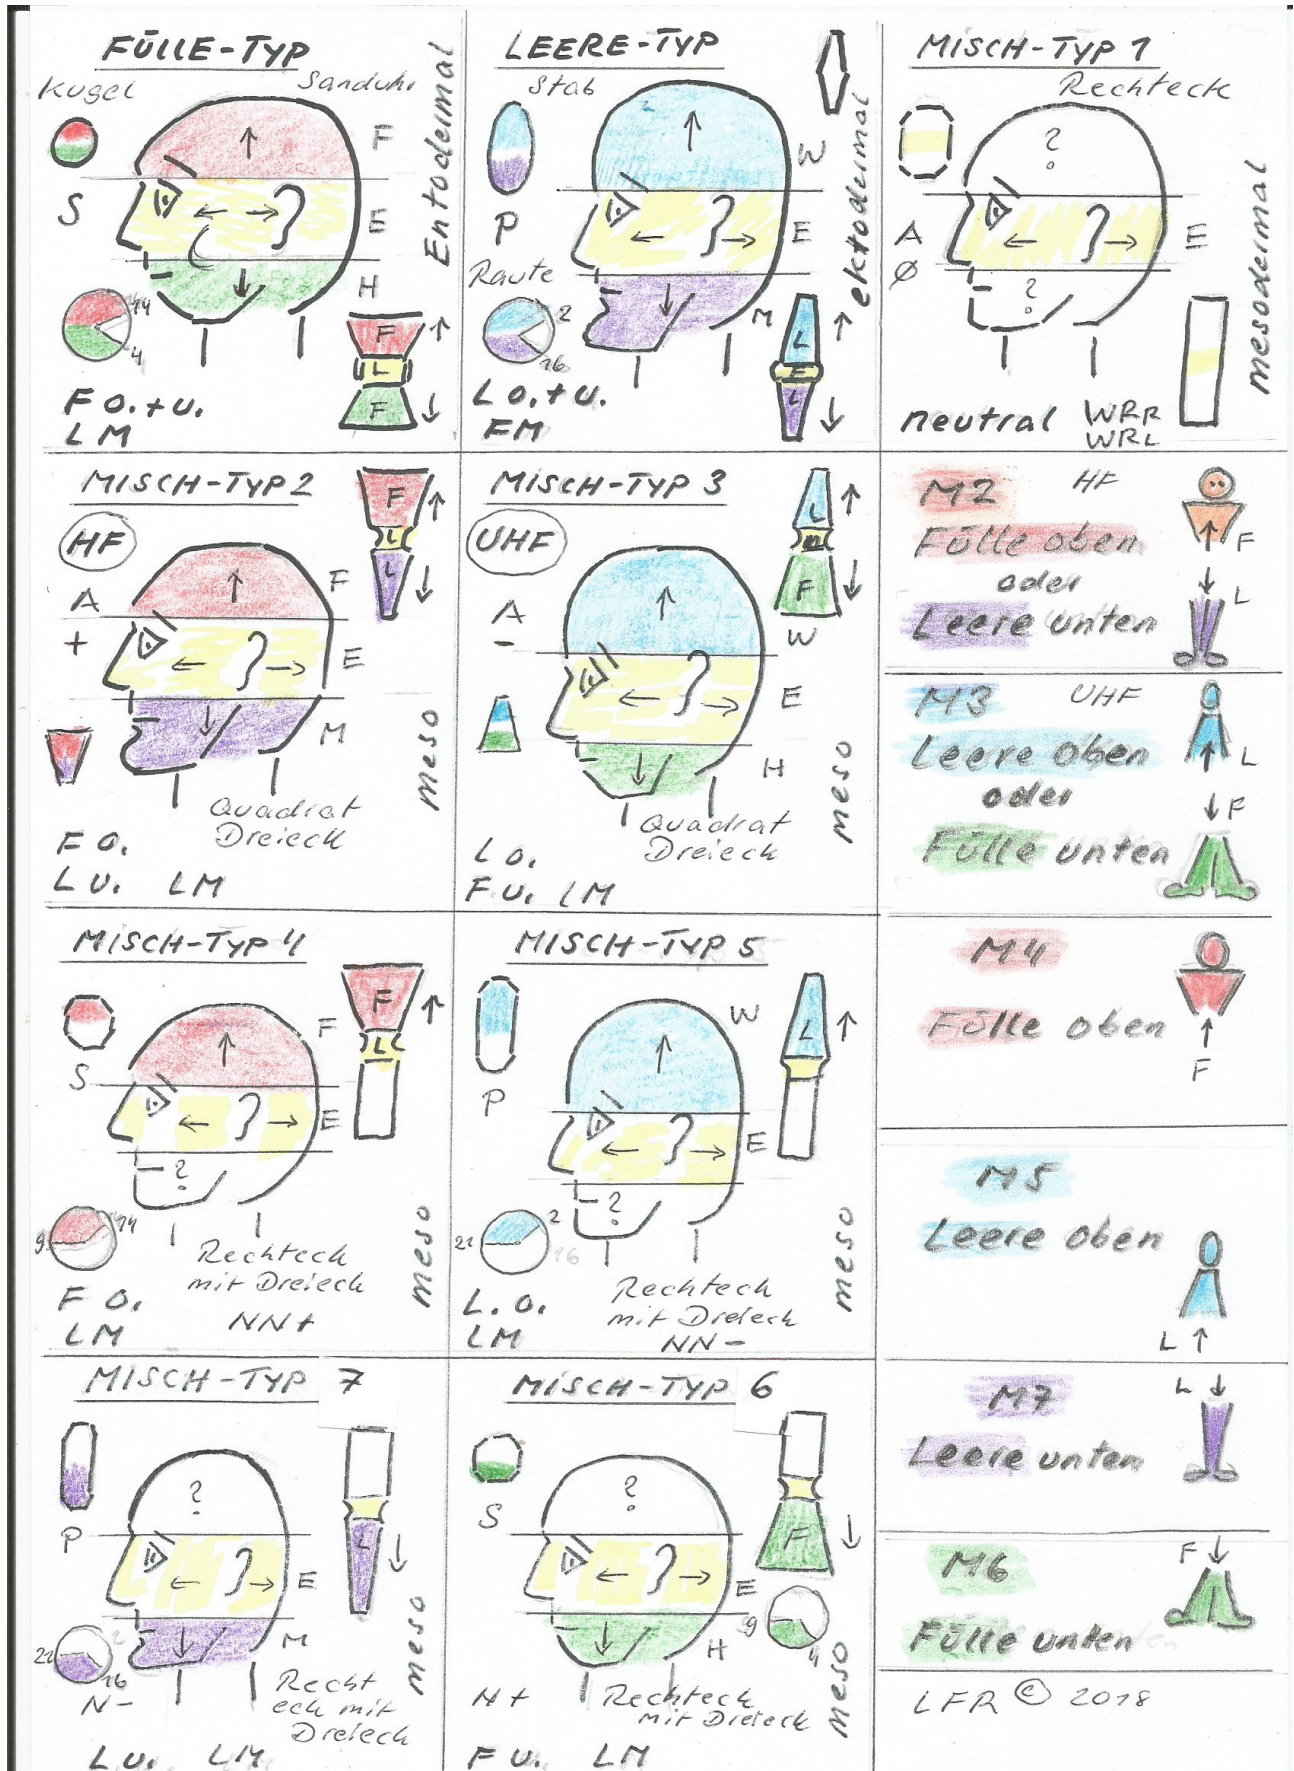 FÜLLE-TYP
Kugel
Sanduhr
Entodermal
F
S
E
H
14
4
F
L
F
F O. + U.
LM
LEERE-TYP
Stab
ektodermal
W
P
E
Raute
M
2
16
L
F
L
L O. + U.
FM
MISCH-TYP 1
Rechteck
mesodermal
?
A
E
Ø
?
neutral WRR
WRL
MISCH-TYP 2
HF
F
L
L
A
F
+
E
M
meso
Quadrat
Dreieck
F O.
L U. LM
MISCH-TYP 3
UHF
L
F
A
W
-
E
H
meso
Quadrat
Dreieck
L O.
F U. LM
M2 HF
Fülle oben
oder
Leere unten
F
L
M3 UHF
Leere Oben
oder
Fülle unten
L
F
MISCH-TYP 4
F
L
F
S
E
?
9
14
meso
Rechteck
mit Dreieck
F O.
LM
NN+
MISCH-TYP 5
W
L
P
E
?
22
2
16
meso
Rechteck
mit Dreieck
L. O.
LM
NN-
M4
Fülle oben
F
M5
Leere oben
L
MISCH-TYP 7
?
L
P
E
M
22
2
16
N-
meso
Recht
eck mit
Dreieck
L U. LM
MISCH-TYP 6
?
F
S
E
H
9
4
meso
N+
Rechteck
mit Dreieck
F U. LM
M7
L
Leere unten
M6
F
Fülle unten
LFR © 2018